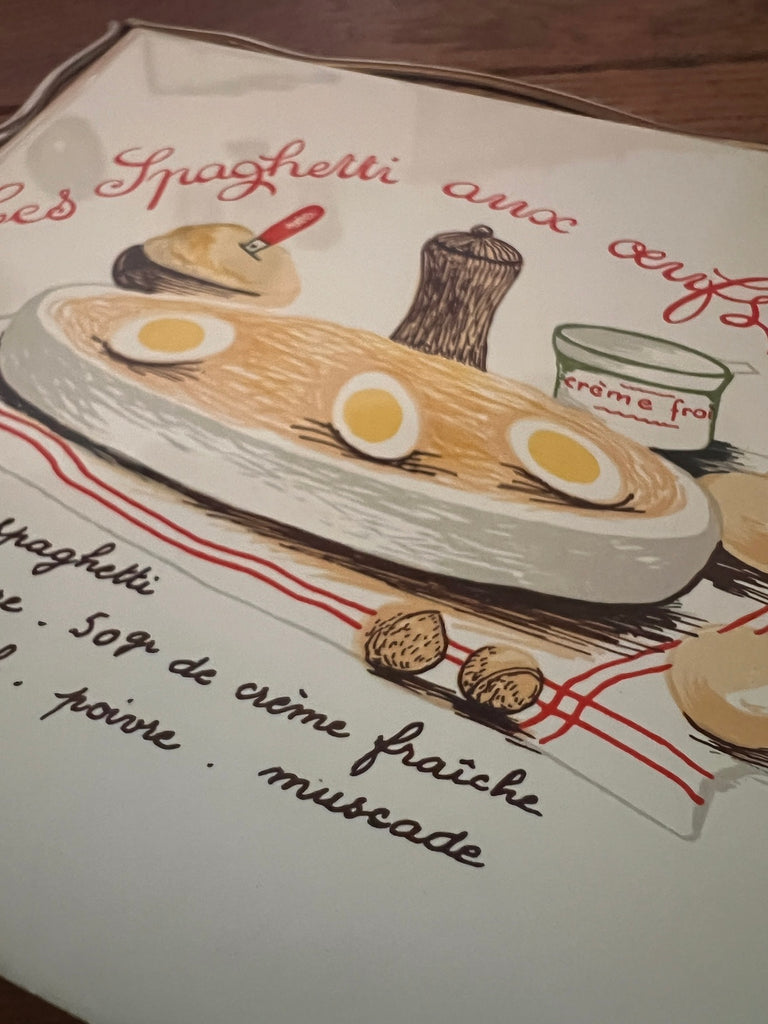 Les Spaghetti aux œufs
crème fraî
spaghetti
50gr de crème fraîche
poivre . muscade